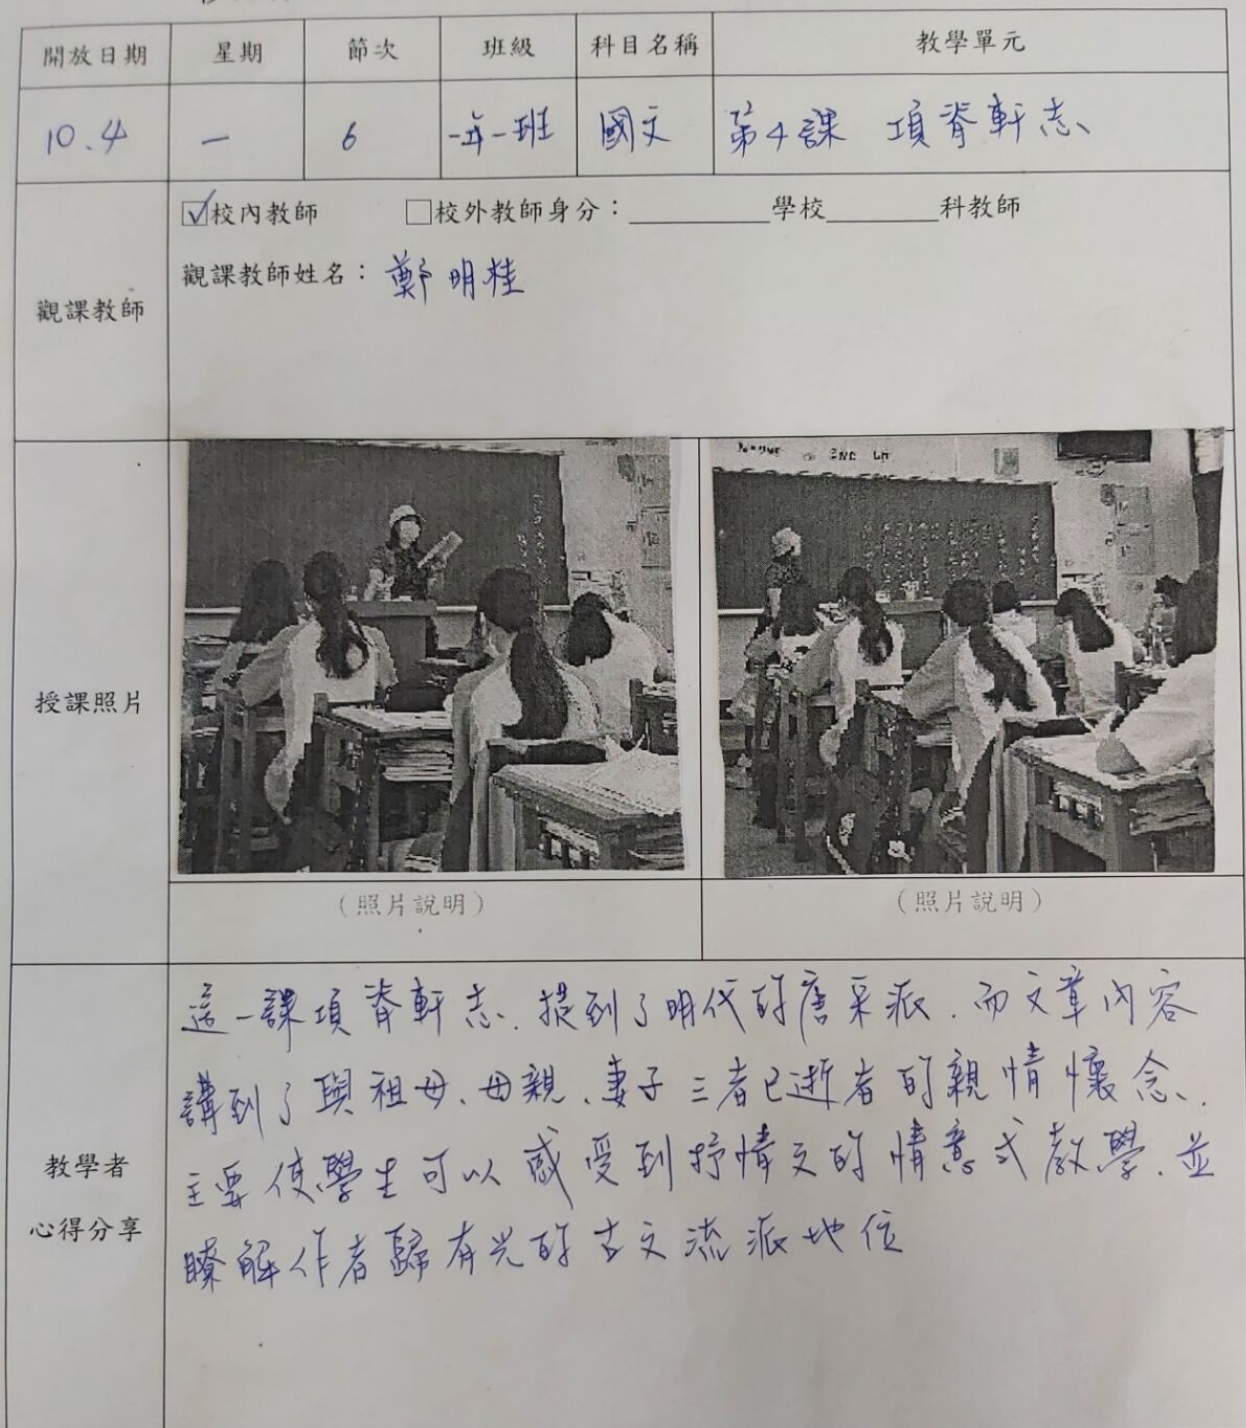 開放日期 星期 節次 班級 科目名稱 教學單元
10.4 一 6 一年一班 國文 第4課 項脊軒志
觀課教師
☑校內教師 □校外教師身分：________學校________科教師
觀課教師姓名：鄭明桂
授課照片
（照片說明） （照片說明）
教學者
心得分享
這一課項脊軒志、提到了明代的唐宋派、而文章內容
講到了與祖母、母親、妻子三者已逝者的親情懷念、
主要使學生可以感受到抒情文的情意式教學、並
瞭解作者歸有光的古文流派地位